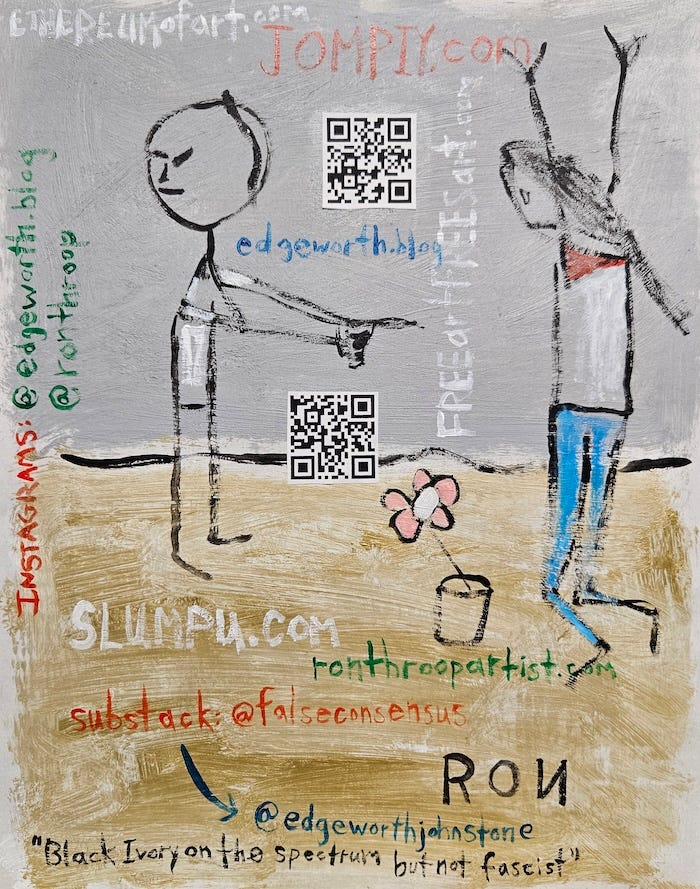 ETHEREUMofart.com
JOMPIY.com
FREEartFREESart.com
edgeworth.blog
INSTAGRAMS: @edgeworth.blog
@ronthroop
SLUMPU.COM
ronthroopartist.com
substack: @falseconsensus
RON
@edgeworthjohnstone
"Black Ivory on the spectrum but not fascist"